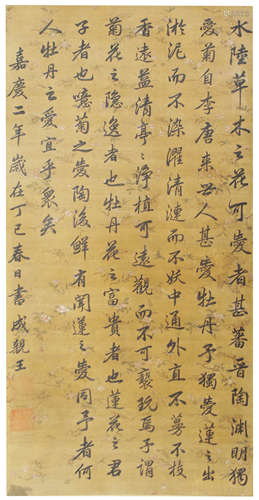 水陸草木之花可愛者甚蕃晉陶淵明獨
愛菊自李唐来世人甚愛牡丹予獨愛蓮之出
淤泥而不染濯清漣而不妖中通外直不蔓不枝
香遠益清亭〻淨植可遠觀而不可褻玩焉予謂
菊花之隱逸者也牡丹花之富貴者也蓮花之君
子者也噫菊之愛陶後鮮有聞蓮之愛同予者何
人牡丹之愛宜乎衆矣
嘉慶二年歲在丁巳春日書 成親王